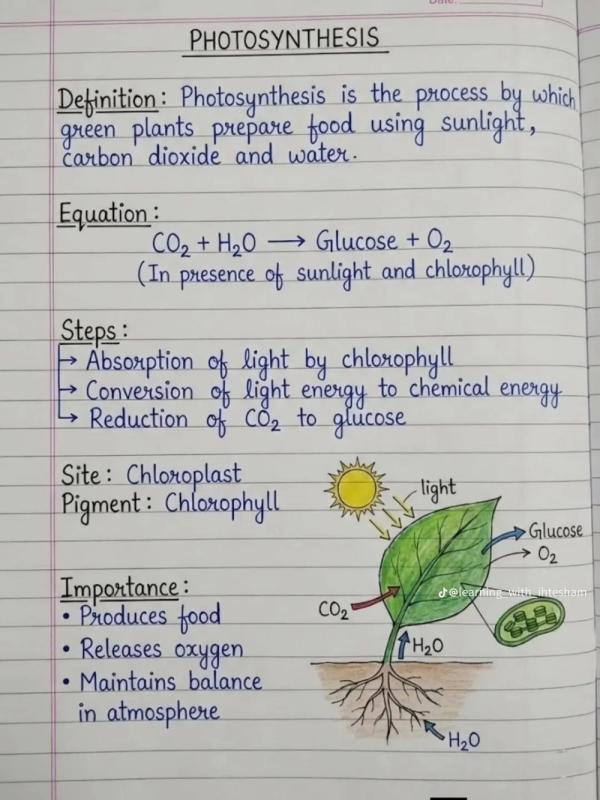 Date:
PHOTOSYNTHESIS
Definition: Photosynthesis is the process by which
green plants prepare food using sunlight,
carbon dioxide and water.
Equation:
CO₂ + H₂O → Glucose + O₂
(In presence of sunlight and chlorophyll)
Steps:
→ Absorption of light by chlorophyll
→ Conversion of light energy to chemical energy
→ Reduction of CO₂ to glucose
Site: Chloroplast
Pigment: Chlorophyll
light
Glucose
O₂
@learning_with_ihtesham
CO₂
H₂O
H₂O
Importance:
• Produces food
• Releases oxygen
• Maintains balance
in atmosphere